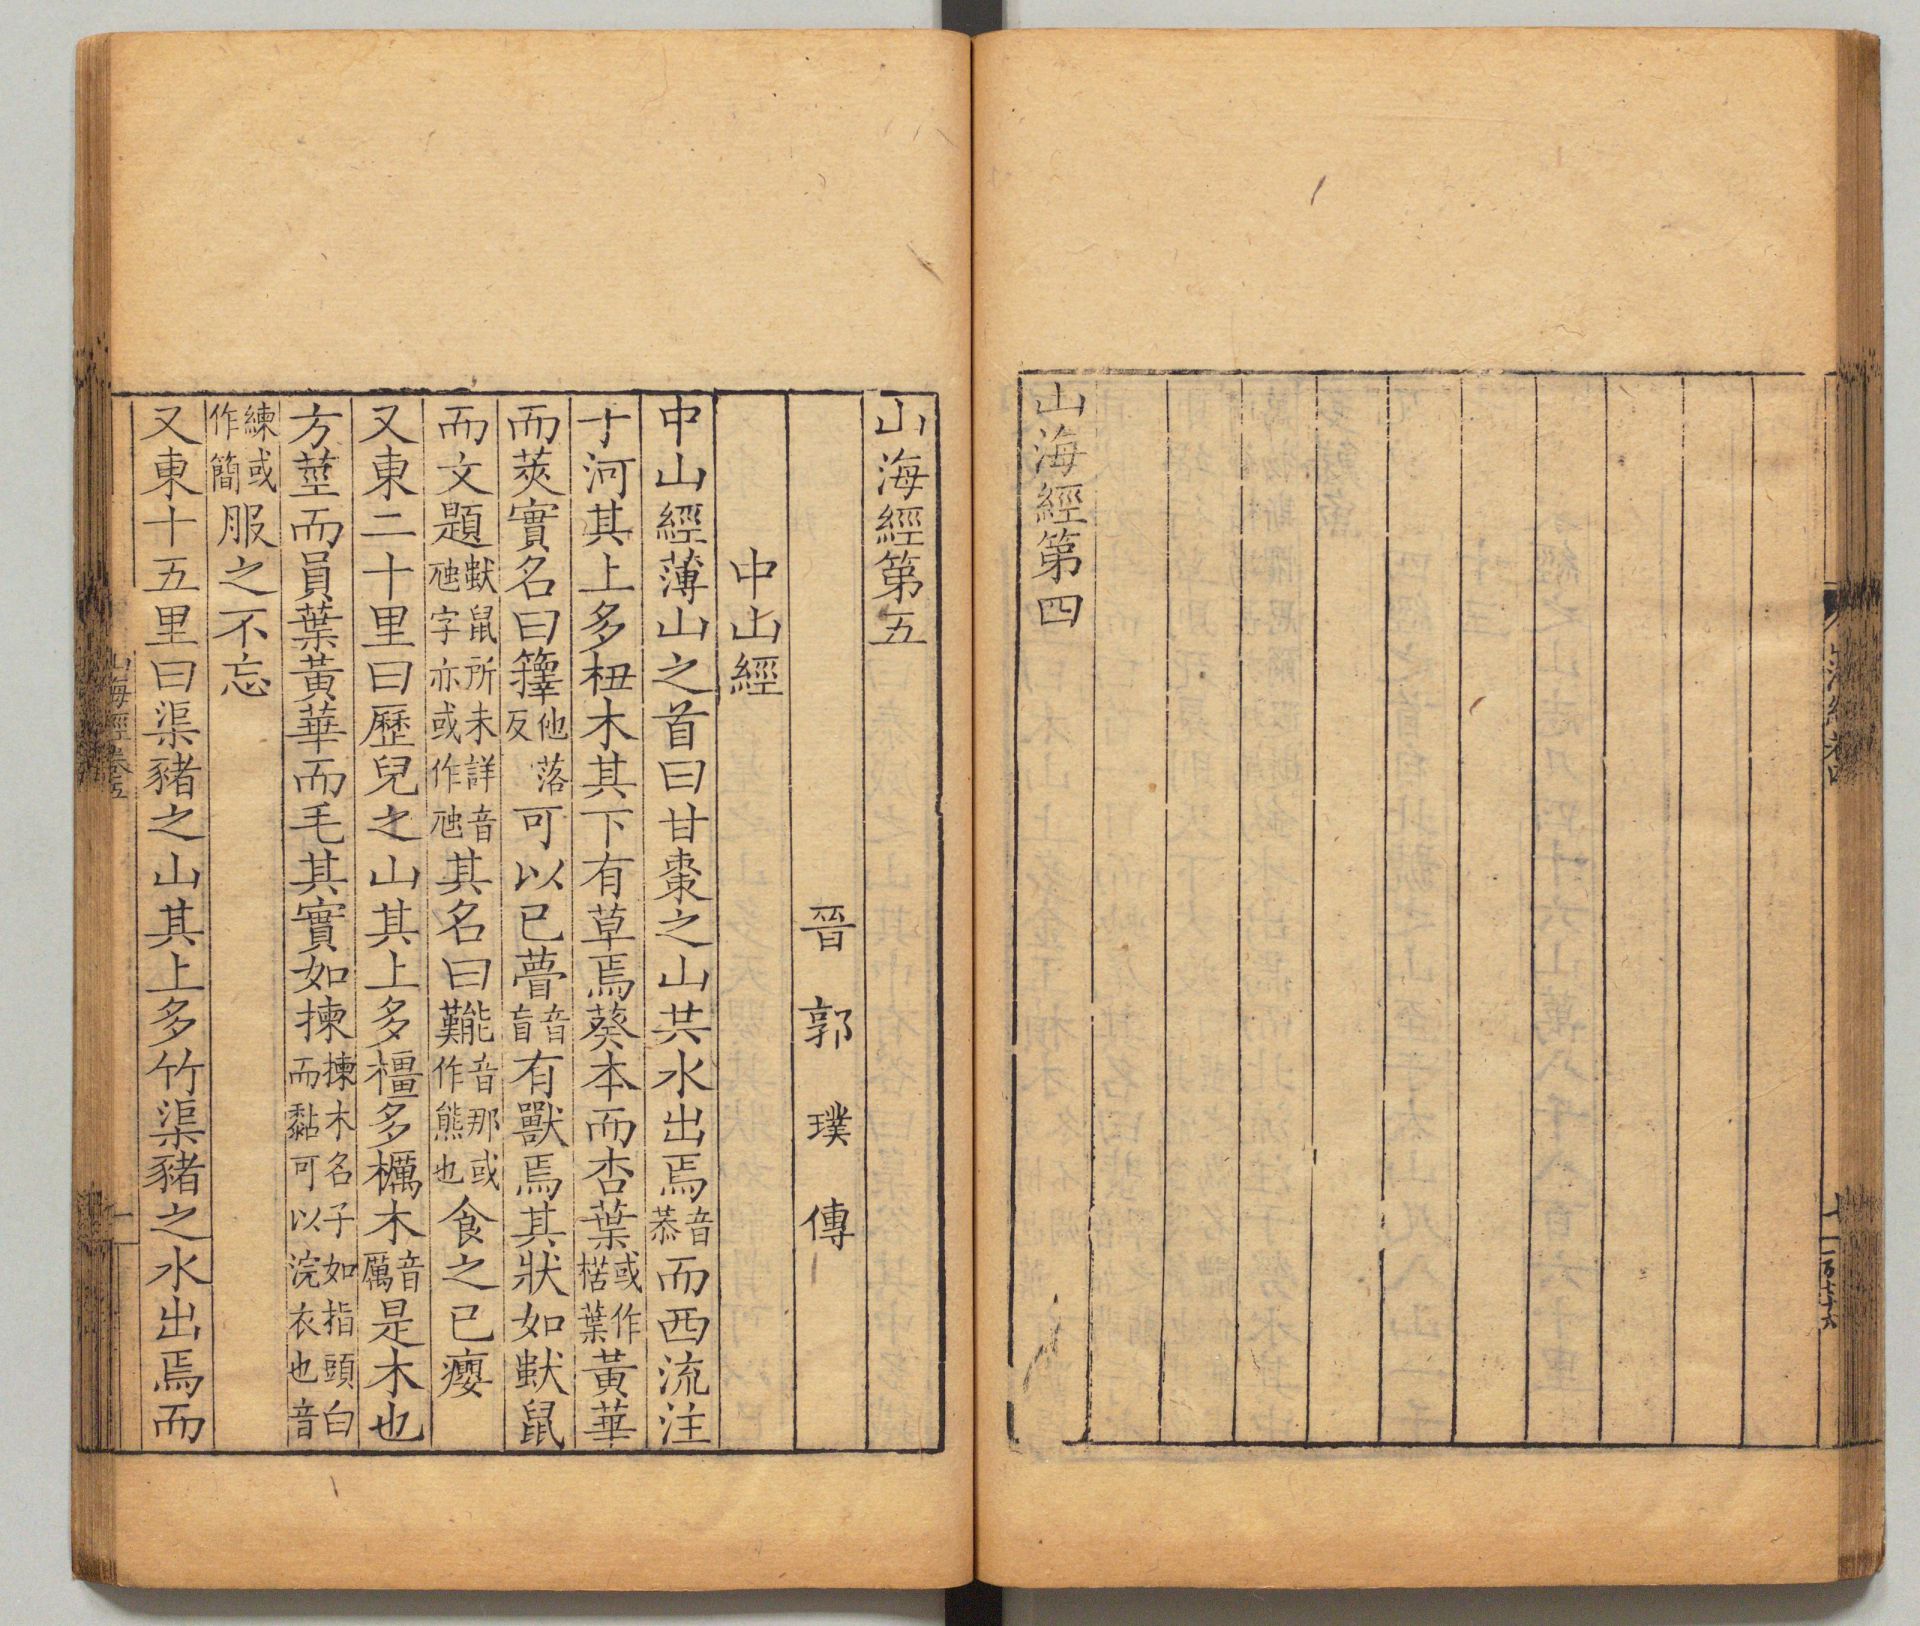 山海經第四
山海經第五
晉郭璞傳
中山經
中山經薄山之首曰甘棗之山共水出焉音恭而西流注
于河其上多杻木其下有草焉葵本而杏葉或作楛葉黃華
而莢實名曰籜他落反可以已瞢音盲有獸焉其狀如鼠
而文題鼠所未詳音虺字亦或作虺其名曰音那或作熊也食之已癭
又東二十里曰歷兒之山其上多橿多櫔木音厲是木也
方莖而員葉黃華而毛其實如揀揀木名子如指頭白而黏可以浣衣也音
練或作簡服之不忘
又東十五里曰渠豬之山其上多竹渠豬之水出焉而
山海經卷五
一